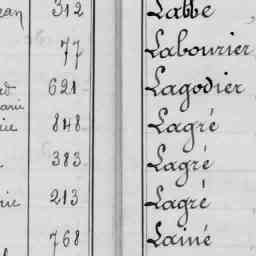 ean 312 Labbe
77 Labourier
rd 621 Lagodier
arie
rie 848 Lagré
383 Lagré
rie 213 Lagré
768 Lainé